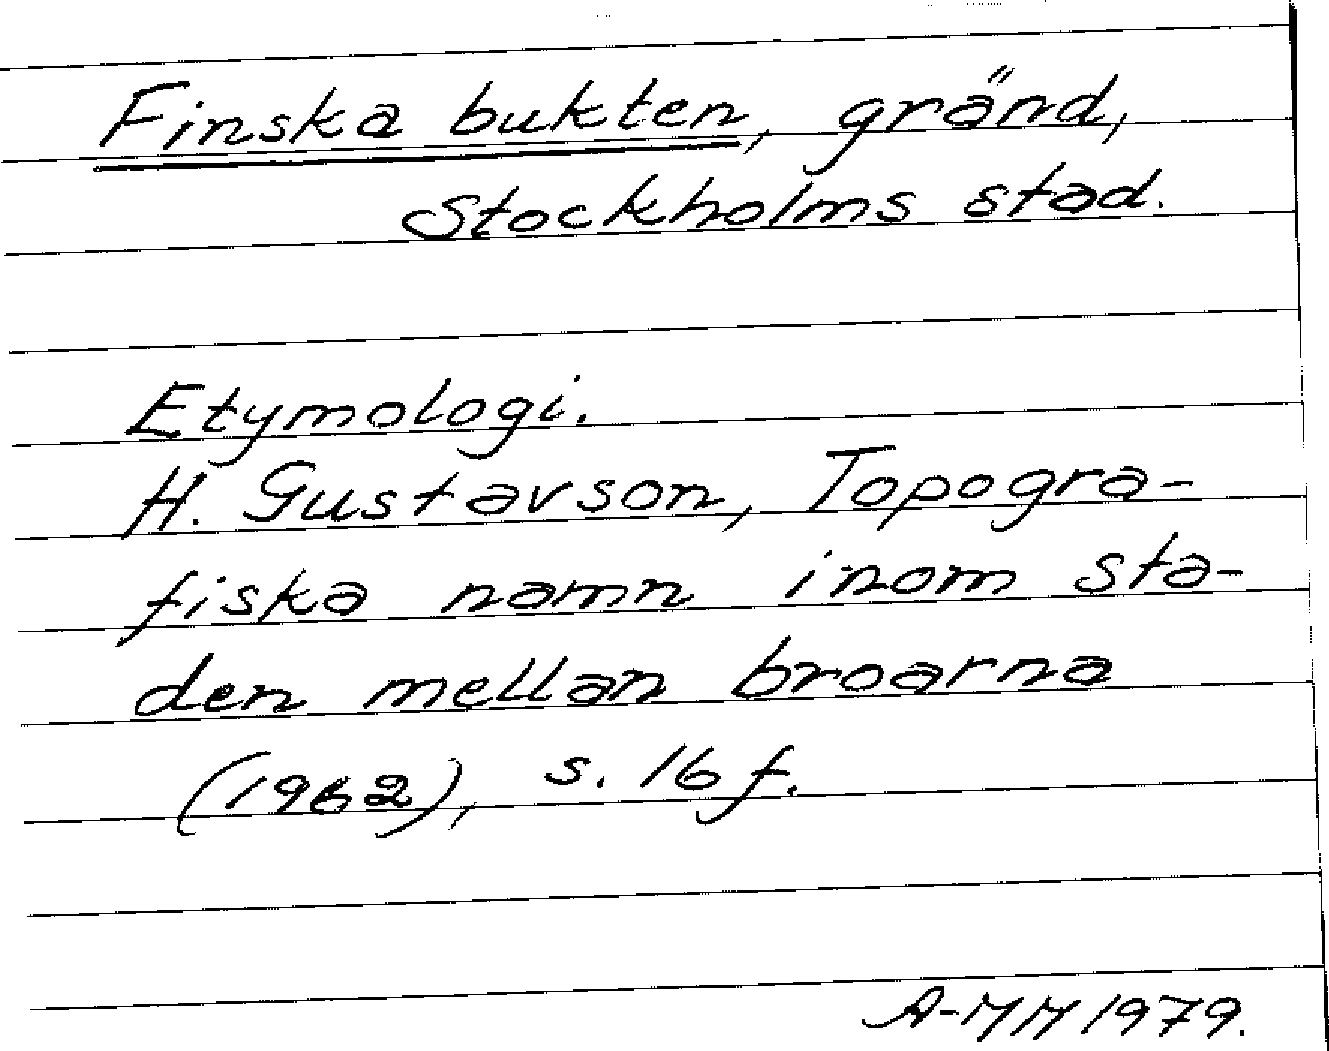 Finska bukten, gränd,
Stockholms stad.
Etymologi.
H. Gustavson, Topogra-
fiska namn inom sta-
den mellan broarna
(1962), s. 16 f.
A-MH 1979.